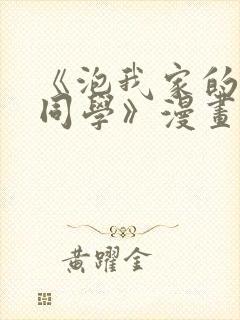 《泡我家的
同學》漫畫
黃躍金